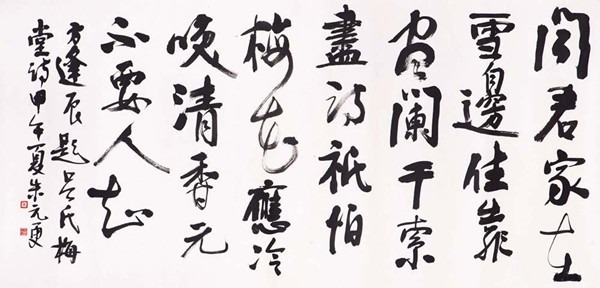 聞君家在
雪邊住靠
尽闌干索
盡詩祇怕
梅花應冷
咲清香元
不要人知
方逢辰題吳氏梅
堂詩甲午夏朱元更